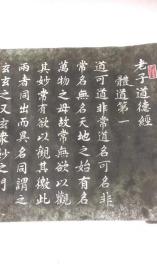 老子道德經
體道第一
道可道非常道名可名非
常名無名天地之始有名
萬物之母故常無欲以觀
其妙常有欲以觀其徼此
兩者同出而異名同謂之
玄玄之又玄衆妙之門